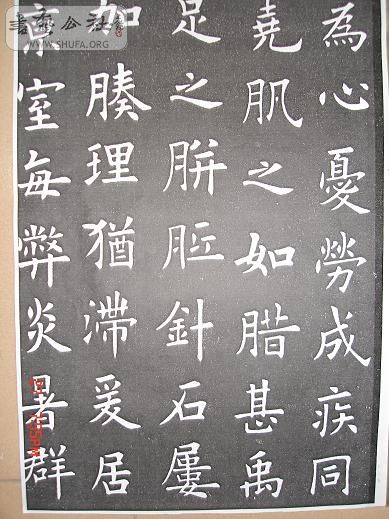 為心憂勞成疾同
堯肌之如腊甚禹
足之胼胝針石屢
加腠理猶滯爰居
京室每弊炎暑群
書藝公社
WWW.SHUFA.ORG